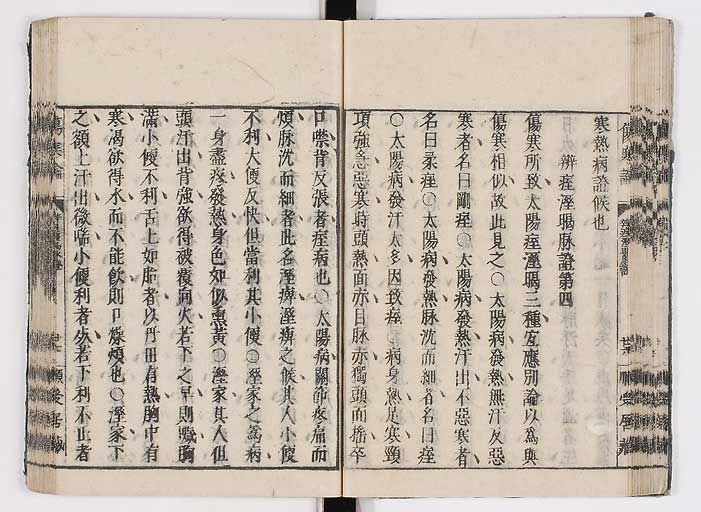 寒熱病證候也
辨痓溼暍脉證第四
傷寒所致太陽痓溼暍三種宜應別論以爲與
傷寒相似故此見之○太陽病發熱無汗反惡
寒者名曰剛痓○太陽病發熱汗出不惡寒者
名曰柔痓○太陽病發熱脉沈而細者名曰痓
○太陽病發汗太多因致痓○病身熱足寒頸
項強急惡寒時頭熱面赤目脉赤獨頭面搖卒
口噤背反張者痓病也○太陽病關節疼痛而
煩脉沈而細者此名溼痹溼痹之候其人小便
不利大便反快但當利其小便○溼家之爲病
一身盡疼發熱身色如似熏黃○溼家其人但
頭汗出背強欲得被覆向火若下之早則噦胸
滿小便不利舌上如胎者以丹田有熱胸中有
寒渴欲得水而不能飲則口燥煩也○溼家下
之額上汗出微喘小便利者死若下利不止者
傷寒論